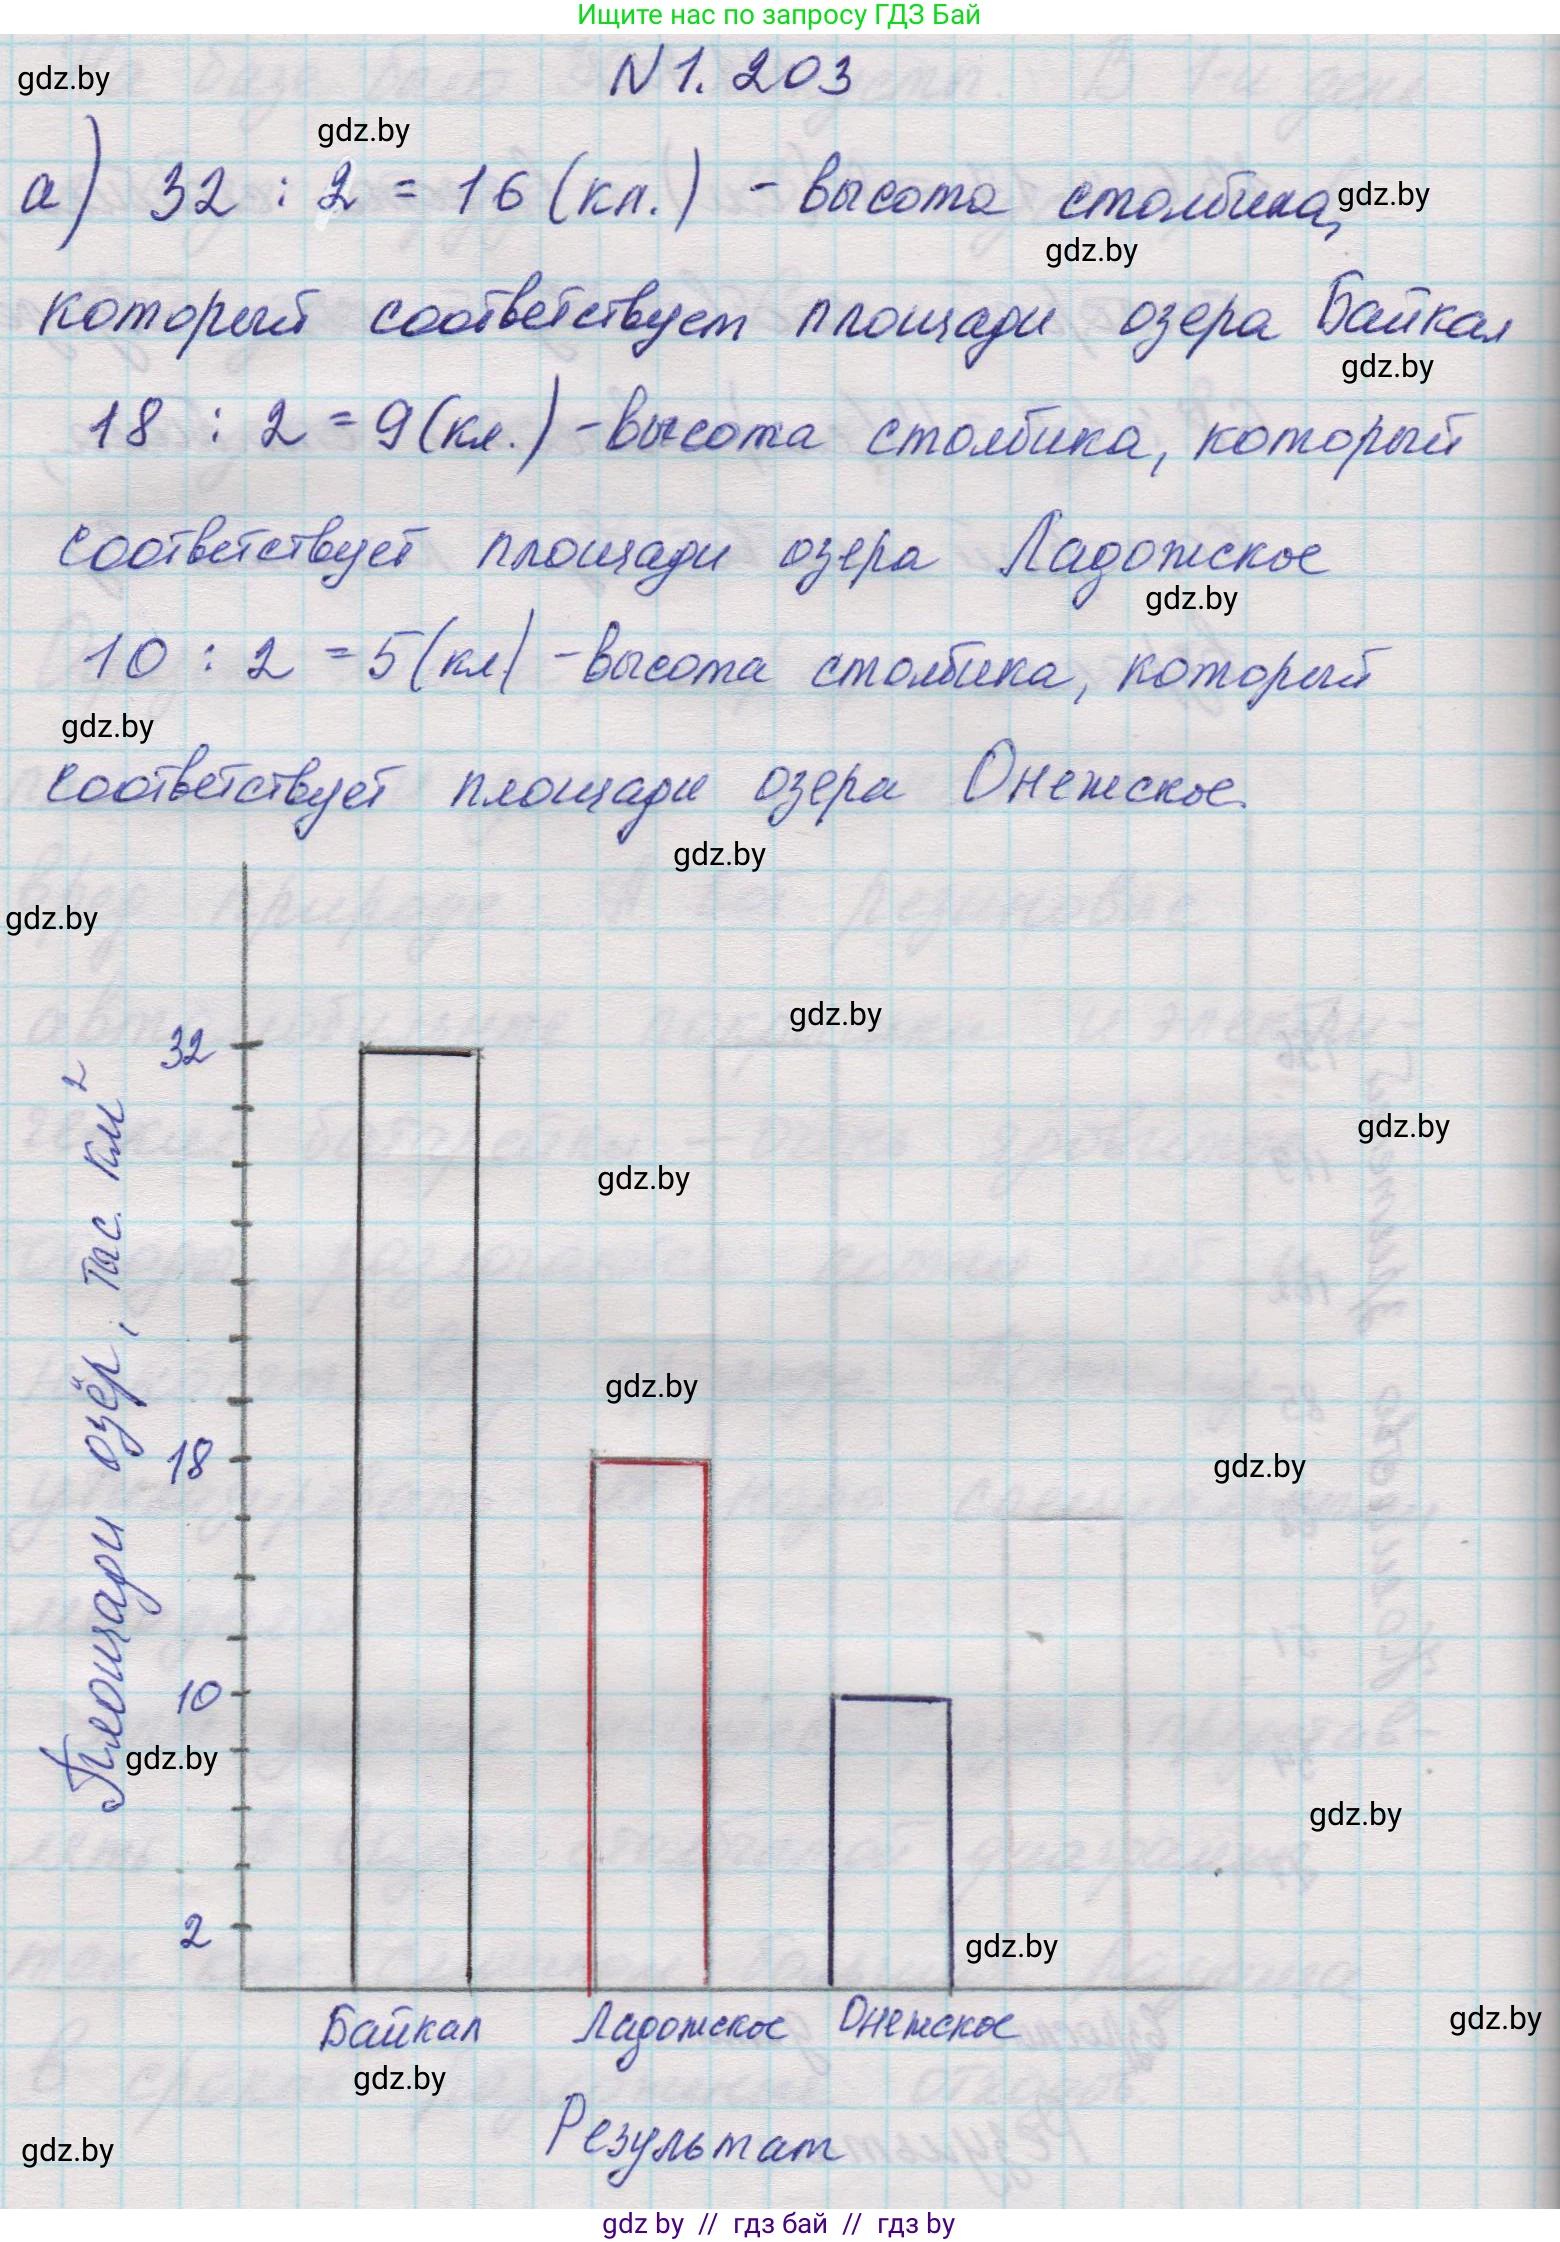 Ищите нас по запросу ГДЗ Бай
N 1. 203
gdz.by
gdz.by
а) 32 : 2 = 16 (кл.) - высота столбика,
gdz.by
gdz.by
который соответствует площади озера Байкал
gdz.by
18 : 2 = 9 (кл.) - высота столбика, который
соответствует площади озера Ладожское
gdz.by
10 : 2 = 5 (кл) - высота столбика, который
gdz.by
соответствует площади озера Онежское.
gdz.by
gdz.by
gdz.by
32
gdz.by
gdz.by
gdz.by
18
gdz.by
10
gdz.by
gdz.by
2
gdz.by
Площади озёр, тыс. км²
Байкал Ладожское Онежское
gdz.by
gdz.by
Результат
gdz.by
gdz by // гдз бай // gdz by